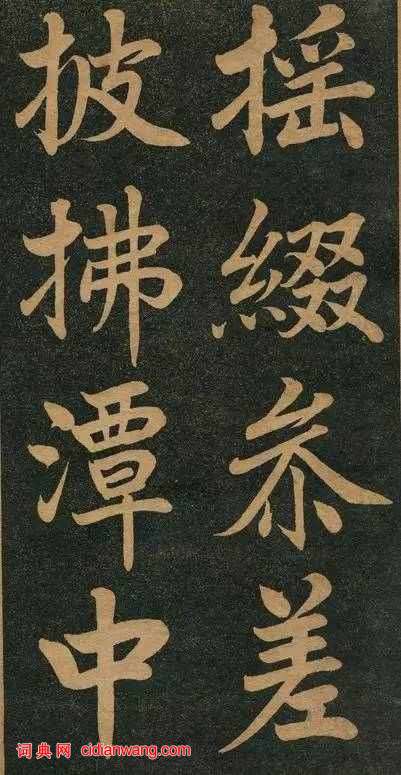 摇綴叅差
披拂潭中
词典网 cidianwang.com